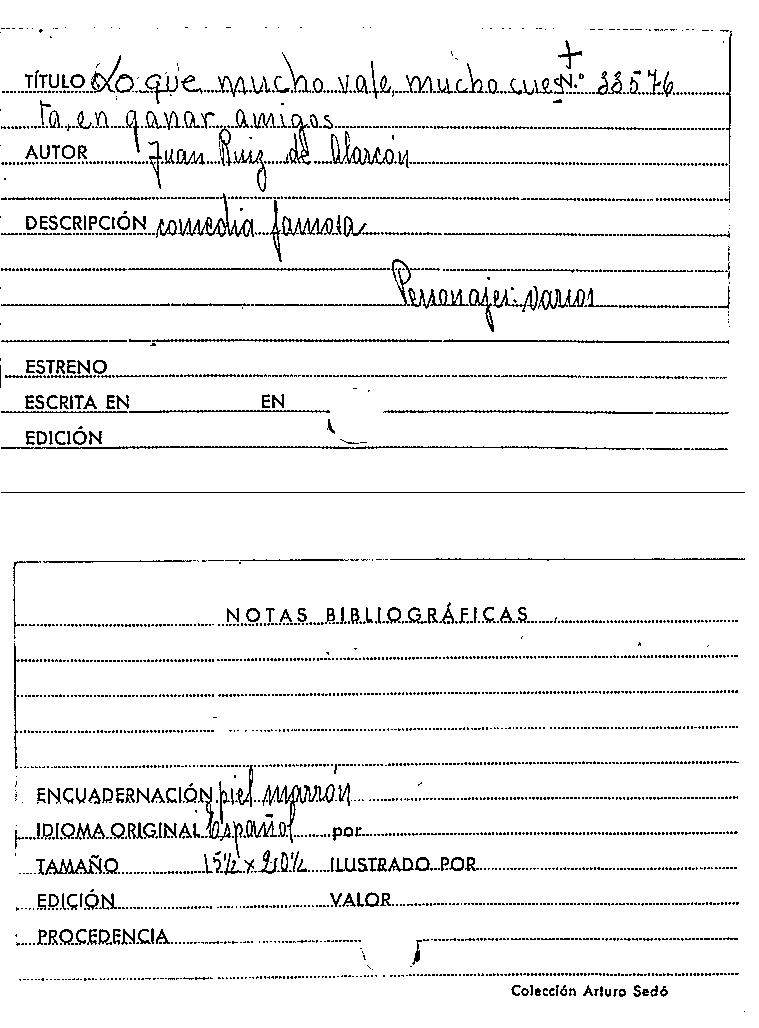 TÍTULO Lo que mucho vale, mucho cues N.º 33576
ta, en ganar amigos
AUTOR Juan Ruiz de Alarcón
DESCRIPCIÓN comedia famosa
Personajes: varios
ESTRENO
ESCRITA EN EN
EDICIÓN
NOTAS BIBLIOGRÁFICAS
ENCUADERNACIÓN piel marrón
IDIOMA ORIGINAL Español por
TAMAÑO 15½ x 20½ ILUSTRADO POR
EDICIÓN VALOR
PROCEDENCIA
Colección Arturo Sedó